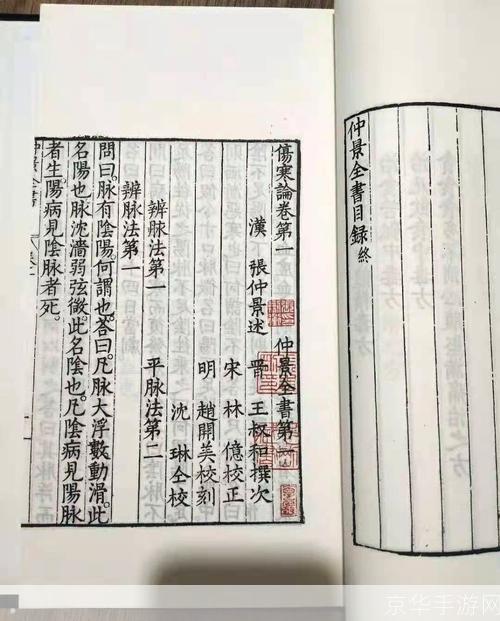 仲景全書目録終
傷寒論卷第一 仲景全書第一
漢 張仲景述 晉 王叔和撰次
宋 林億校正
明 趙開美校刻
沈琳仝校
辨脉法第一 平脉法第二
辨脉法第一
問曰。脉有陰陽。何謂也。答曰。凡脉大浮數動滑。此
名陽也。脉沈濇弱弦微。此名陰也。凡陰病見陽脉
者生。陽病見陰脉者死。
京华手游网